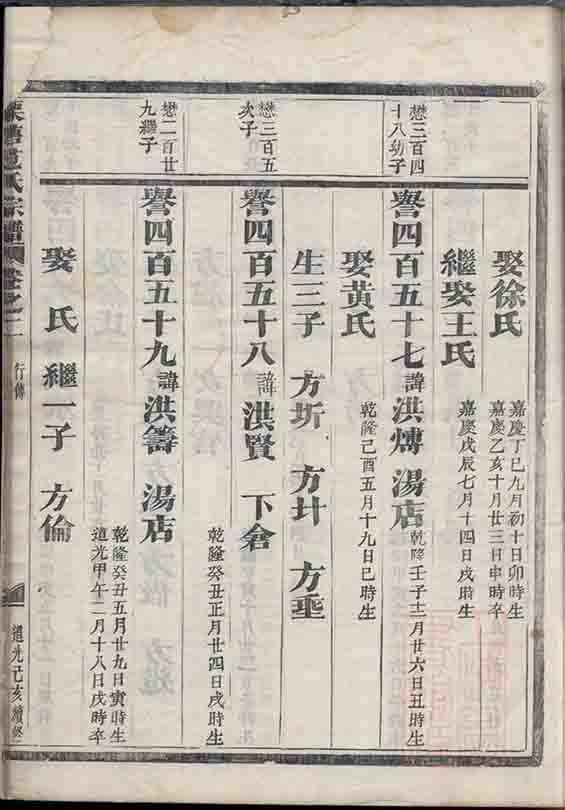 娶徐氏 嘉慶丁巳九月初十日卯時生
嘉慶乙亥十月廿三日申時卒
繼娶王氏 嘉慶戊辰七月十四日戌時生
懋三百四
十八幼子
譽四百五十七 諱 洪煿 湯店 乾隆壬子十二月廿六日丑時生
娶黃氏 乾隆己酉五月十九日巳時生
生三子 方圻 方圤 方垩
懋三百五
次子
譽四百五十八 諱 洪賢 下倉
乾隆癸丑正月廿四日戌時生
懋二百廿
九繼子
譽四百五十九 諱 洪籌 湯店
乾隆癸丑五月廿九日寅時生
道光甲午二月十八日戌時卒
娶 氏 繼一子 方倫
氏宗譜 卷之二 行傳 道光己亥續修